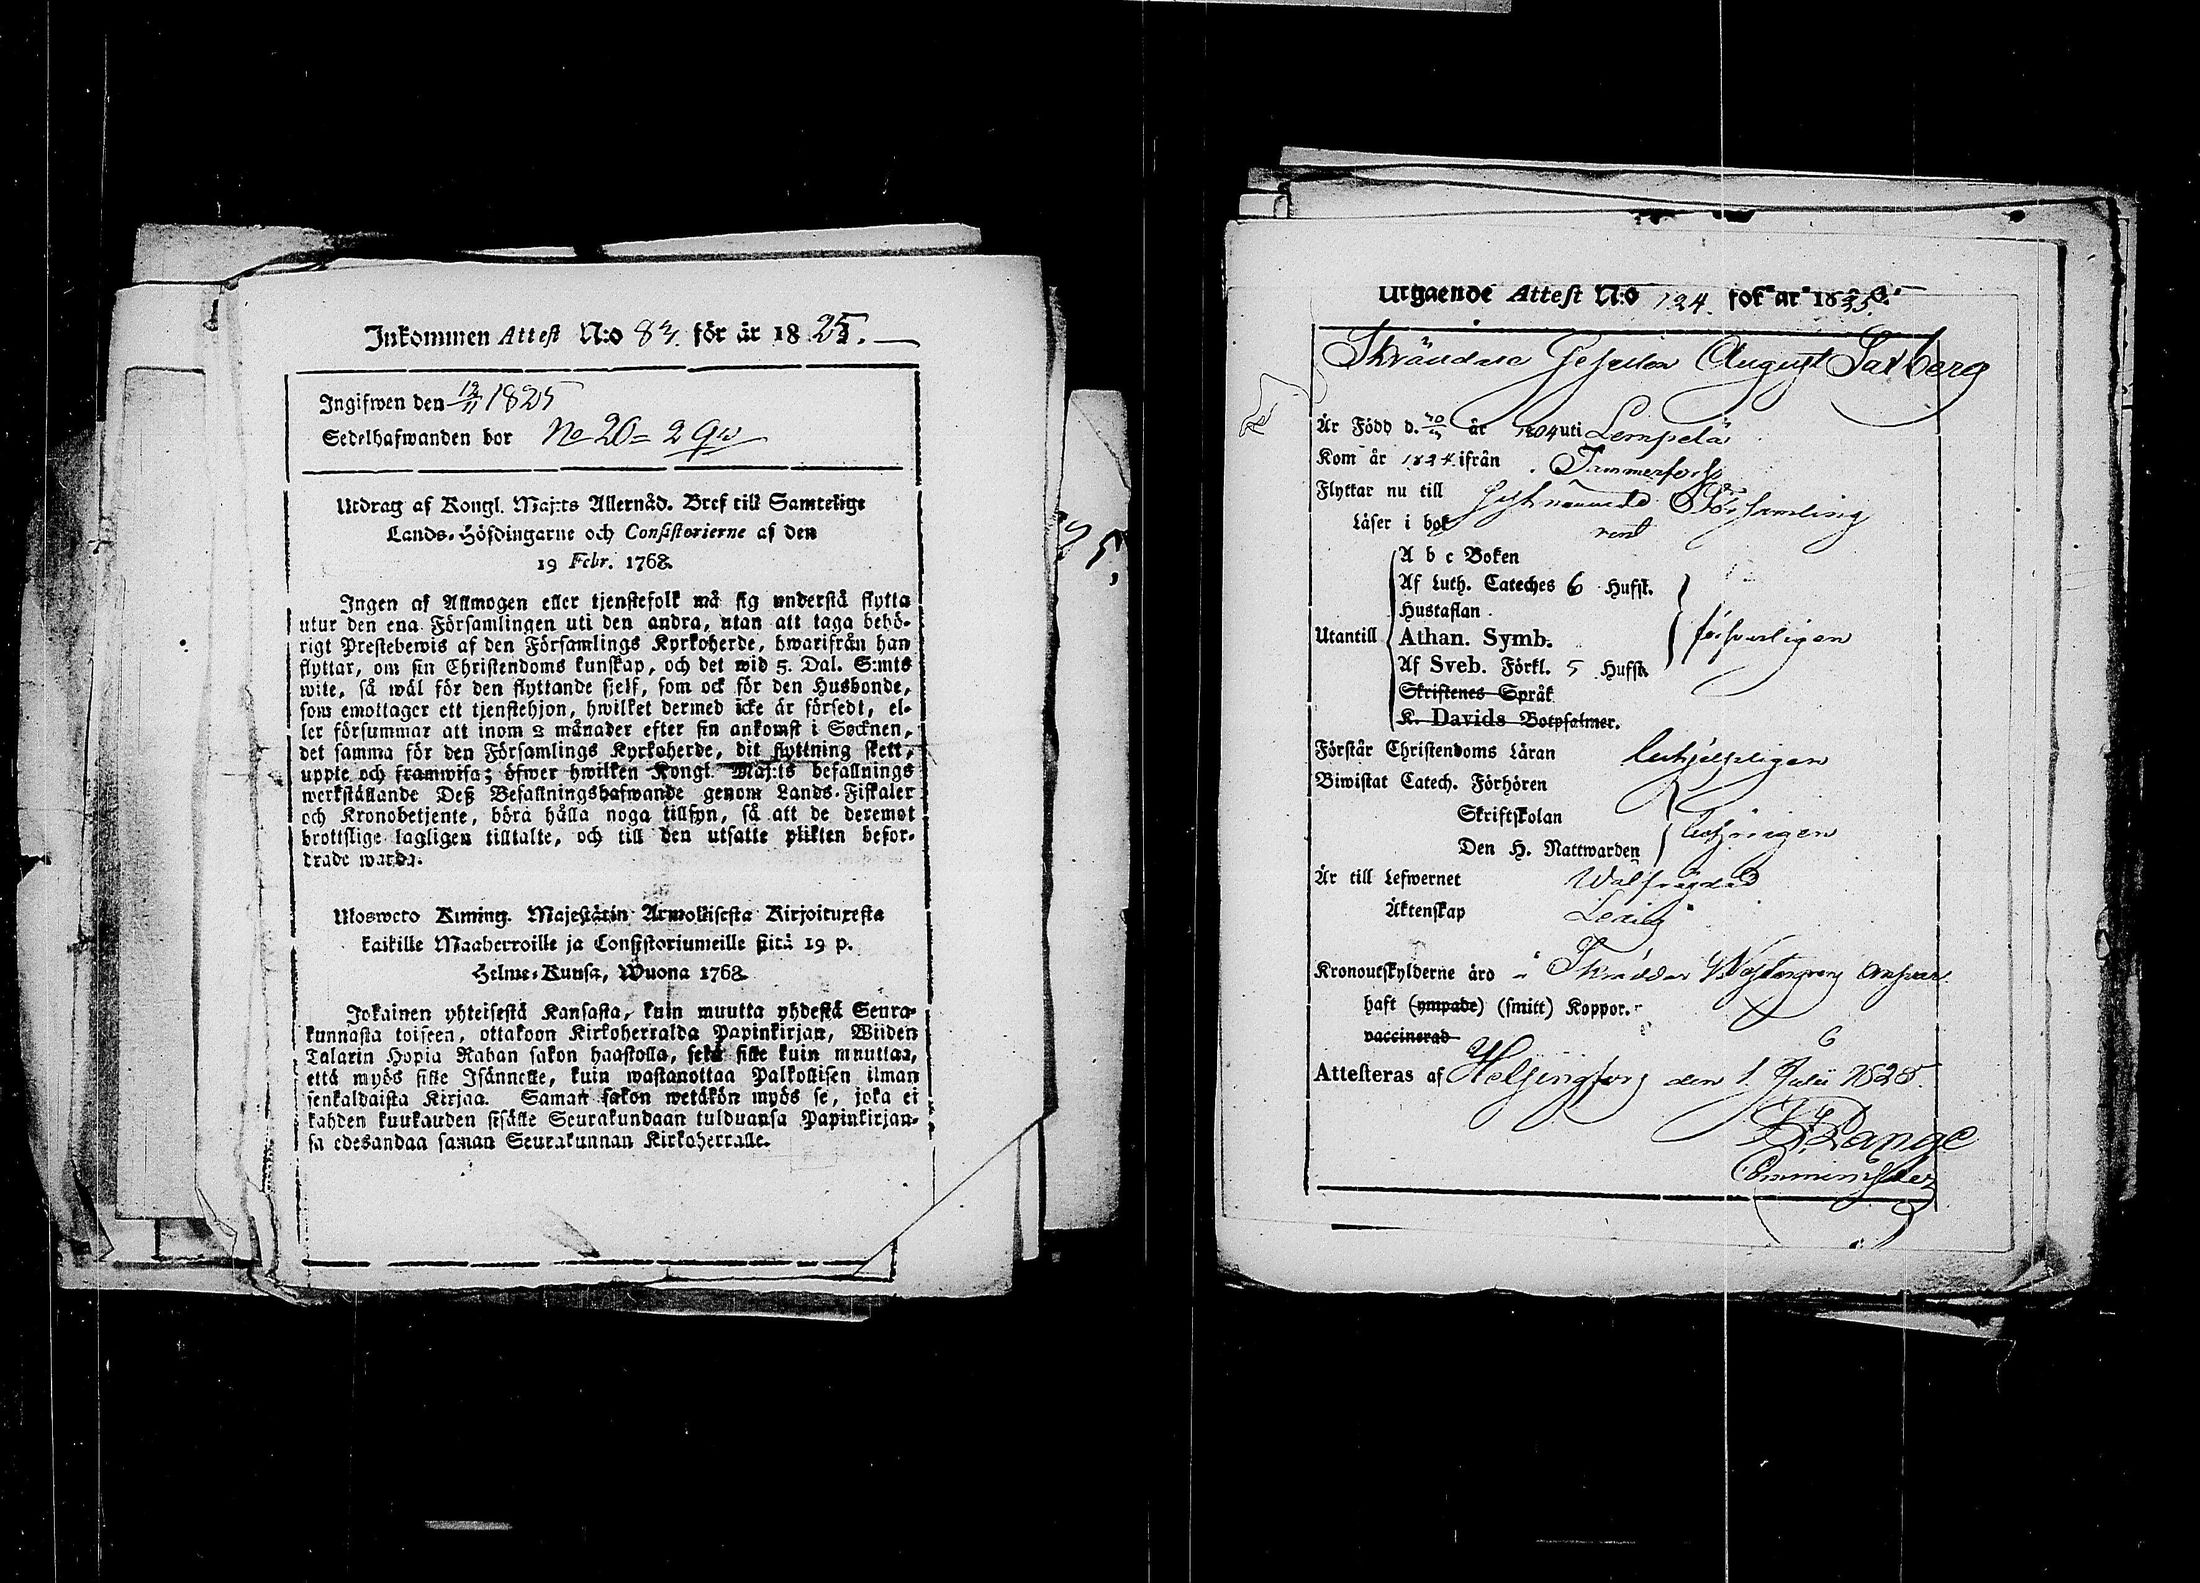 Inkommen Attest N:o 83. för år 1825.
Ingifwen den 12/11 1825
Sedelhafwanden bor No 20 = 2 Qu
Utdrag af Kongl. Maj:ts Allernåd. Bref till Samtelige
Lands-Höfdingarne och Consistorierne af den
19 Febr. 1768.
Ingen af Allmogen eller tjenstefolk må sig understå flytta
utur den ena Församlingen uti den andra, utan att taga behö-
rigt Prestebewis af den Församlings Kyrkoherde, hwarifrån han
flyttar, om sin Christendoms kunskap, och det wid 5. Dal. S:mts
wite, så wäl för den flyttande sjelf, som ock för den Husbonde,
som emottager ett tjenstehjon, hwilket dermed icke är försedt, el-
ler försummar att inom 2 månader efter sin ankomst i Socknen,
det samma för den Församlings Kyrkoherde, dit flyttning skett,
uppte och framwisa; öfwer hwilken Kongl. Maj:ts befallnings
werkställande Deß Befallningshafwande genom Lands-Fiskaler
och Kronobetjente, böra hålla noga tillsyn, så att de deremot
brottslige lagligen tilltalte, och till den utsatte plikten befor-
drade warda.
Ulosweto Kuning. Majestätin Armollisesta Kirjoituxesta
kaikille Maaherroille ja Consistoriumeille siitä 19 p.
Helme-Kuusa, Wuona 1768.
Jokainen yhteisestä Kansasta, kuin muutta yhdestä Seura-
kunnasta toiseen, ottakoon Kirkoherralda Papinkirjan, Wiiden
Talarin Hopia Rahan sakon haastolla, sekä sille kuin muuttaa,
että myös sille Isännelle, kuin wastanottaa Palkollisen ilman
senkaldaista Kirjaa. Saman sakon wetäkön myös se, joka ei
kahden kuukauden sisälle Seurakundaan tulduansa Papinkirjan-
sa edesandaa saman Seurakunnan Kirkoherralle.
25,
Utgående Attest N:o 124. för år 1825.
Skräddare Gesellen August Saxberg
Är Född d. 20/3 år 1804 uti Lempelä
Kom år 1824 ifrån Tammerfors
Flyttar nu till Församling
Läser i bok rent
A b c Boken
Af Luth. Cateches 6 Hufst.
Hustaflan
Utantill Athan. Symb. försvarligen
Af Sveb. Förkl. 5 Hufst.
Skriftenes Språk
K. Davids Botpsalmer.
Förstår Christendoms Läran hjelpligen
Biwistat Catech. Förhören
Skriftskolan
Den H. Nattwarden behörigen
Är till Lefwernet Wälfrägdad
Äktenskap Ledig
Kronoutskylderne äro å Skräddar ansvar.
haft (ympade) (smitt) Koppor.
vaccinerad
Attesteras af Helsingfors den 1 Julii 1825.
Lange
Comminister